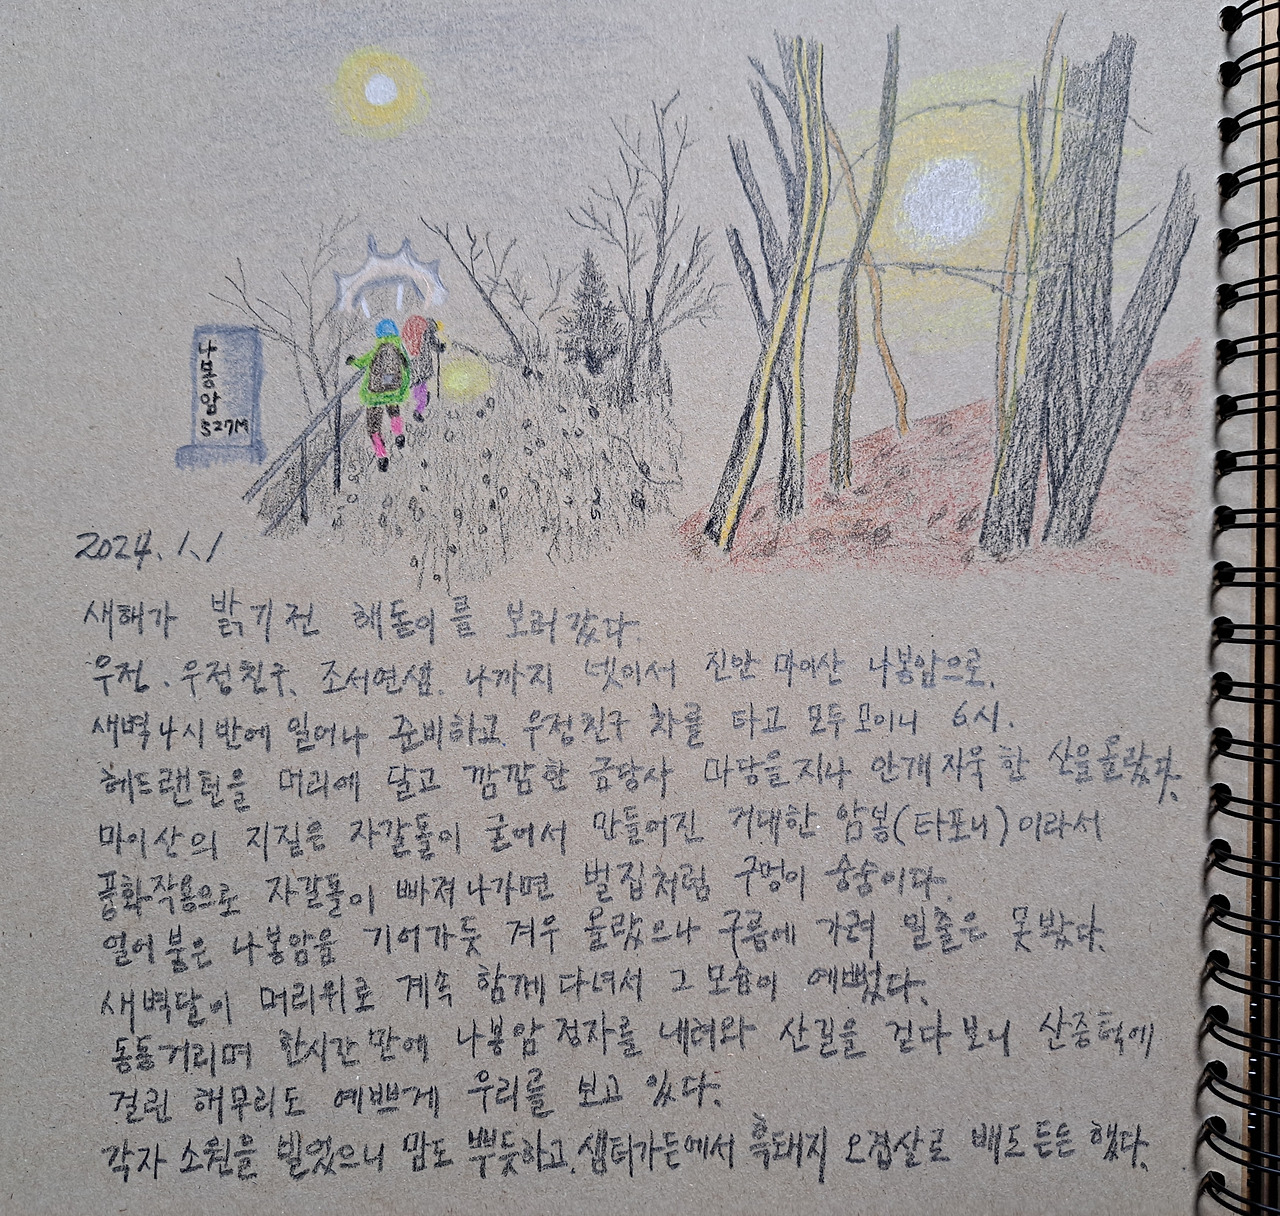 나
봉
암
527M
2024. 1. 1
새해가 밝기전 해돋이를 보러갔다.
우전. 우정친구. 조서연샘. 나까지 넷이서 진안 마이산 나봉암으로.
새벽4시반에 일어나 준비하고 우정친구 차를 타고 모두모이니 6시.
헤드랜턴을 머리에 달고 깜깜한 금당사 마당을지나 안개자욱한 산을올랐다.
마이산의 지질은 자갈돌이 굳어서 만들어진 거대한 암봉(타포니)이라서
풍화작용으로 자갈돌이 빠져나가면 벌집처럼 구멍이 숭숭이다.
얼어붙은 나봉암을 기어가듯 겨우 올랐으나 구름에 가려 일출은 못봤다.
새벽달이 머리위로 계속 함께다녀서 그 모습이 예뻤다.
동동거리며 한시간만에 나봉암정자를 내려와 산길을 걷다보니 산중턱에
걸린 해무리도 예쁘게 우리를 보고 있다.
각자 소원을 빌었으니 맘도 뿌듯하고. 샘터가든에서 흑돼지 오겹살로 배도든든했다.